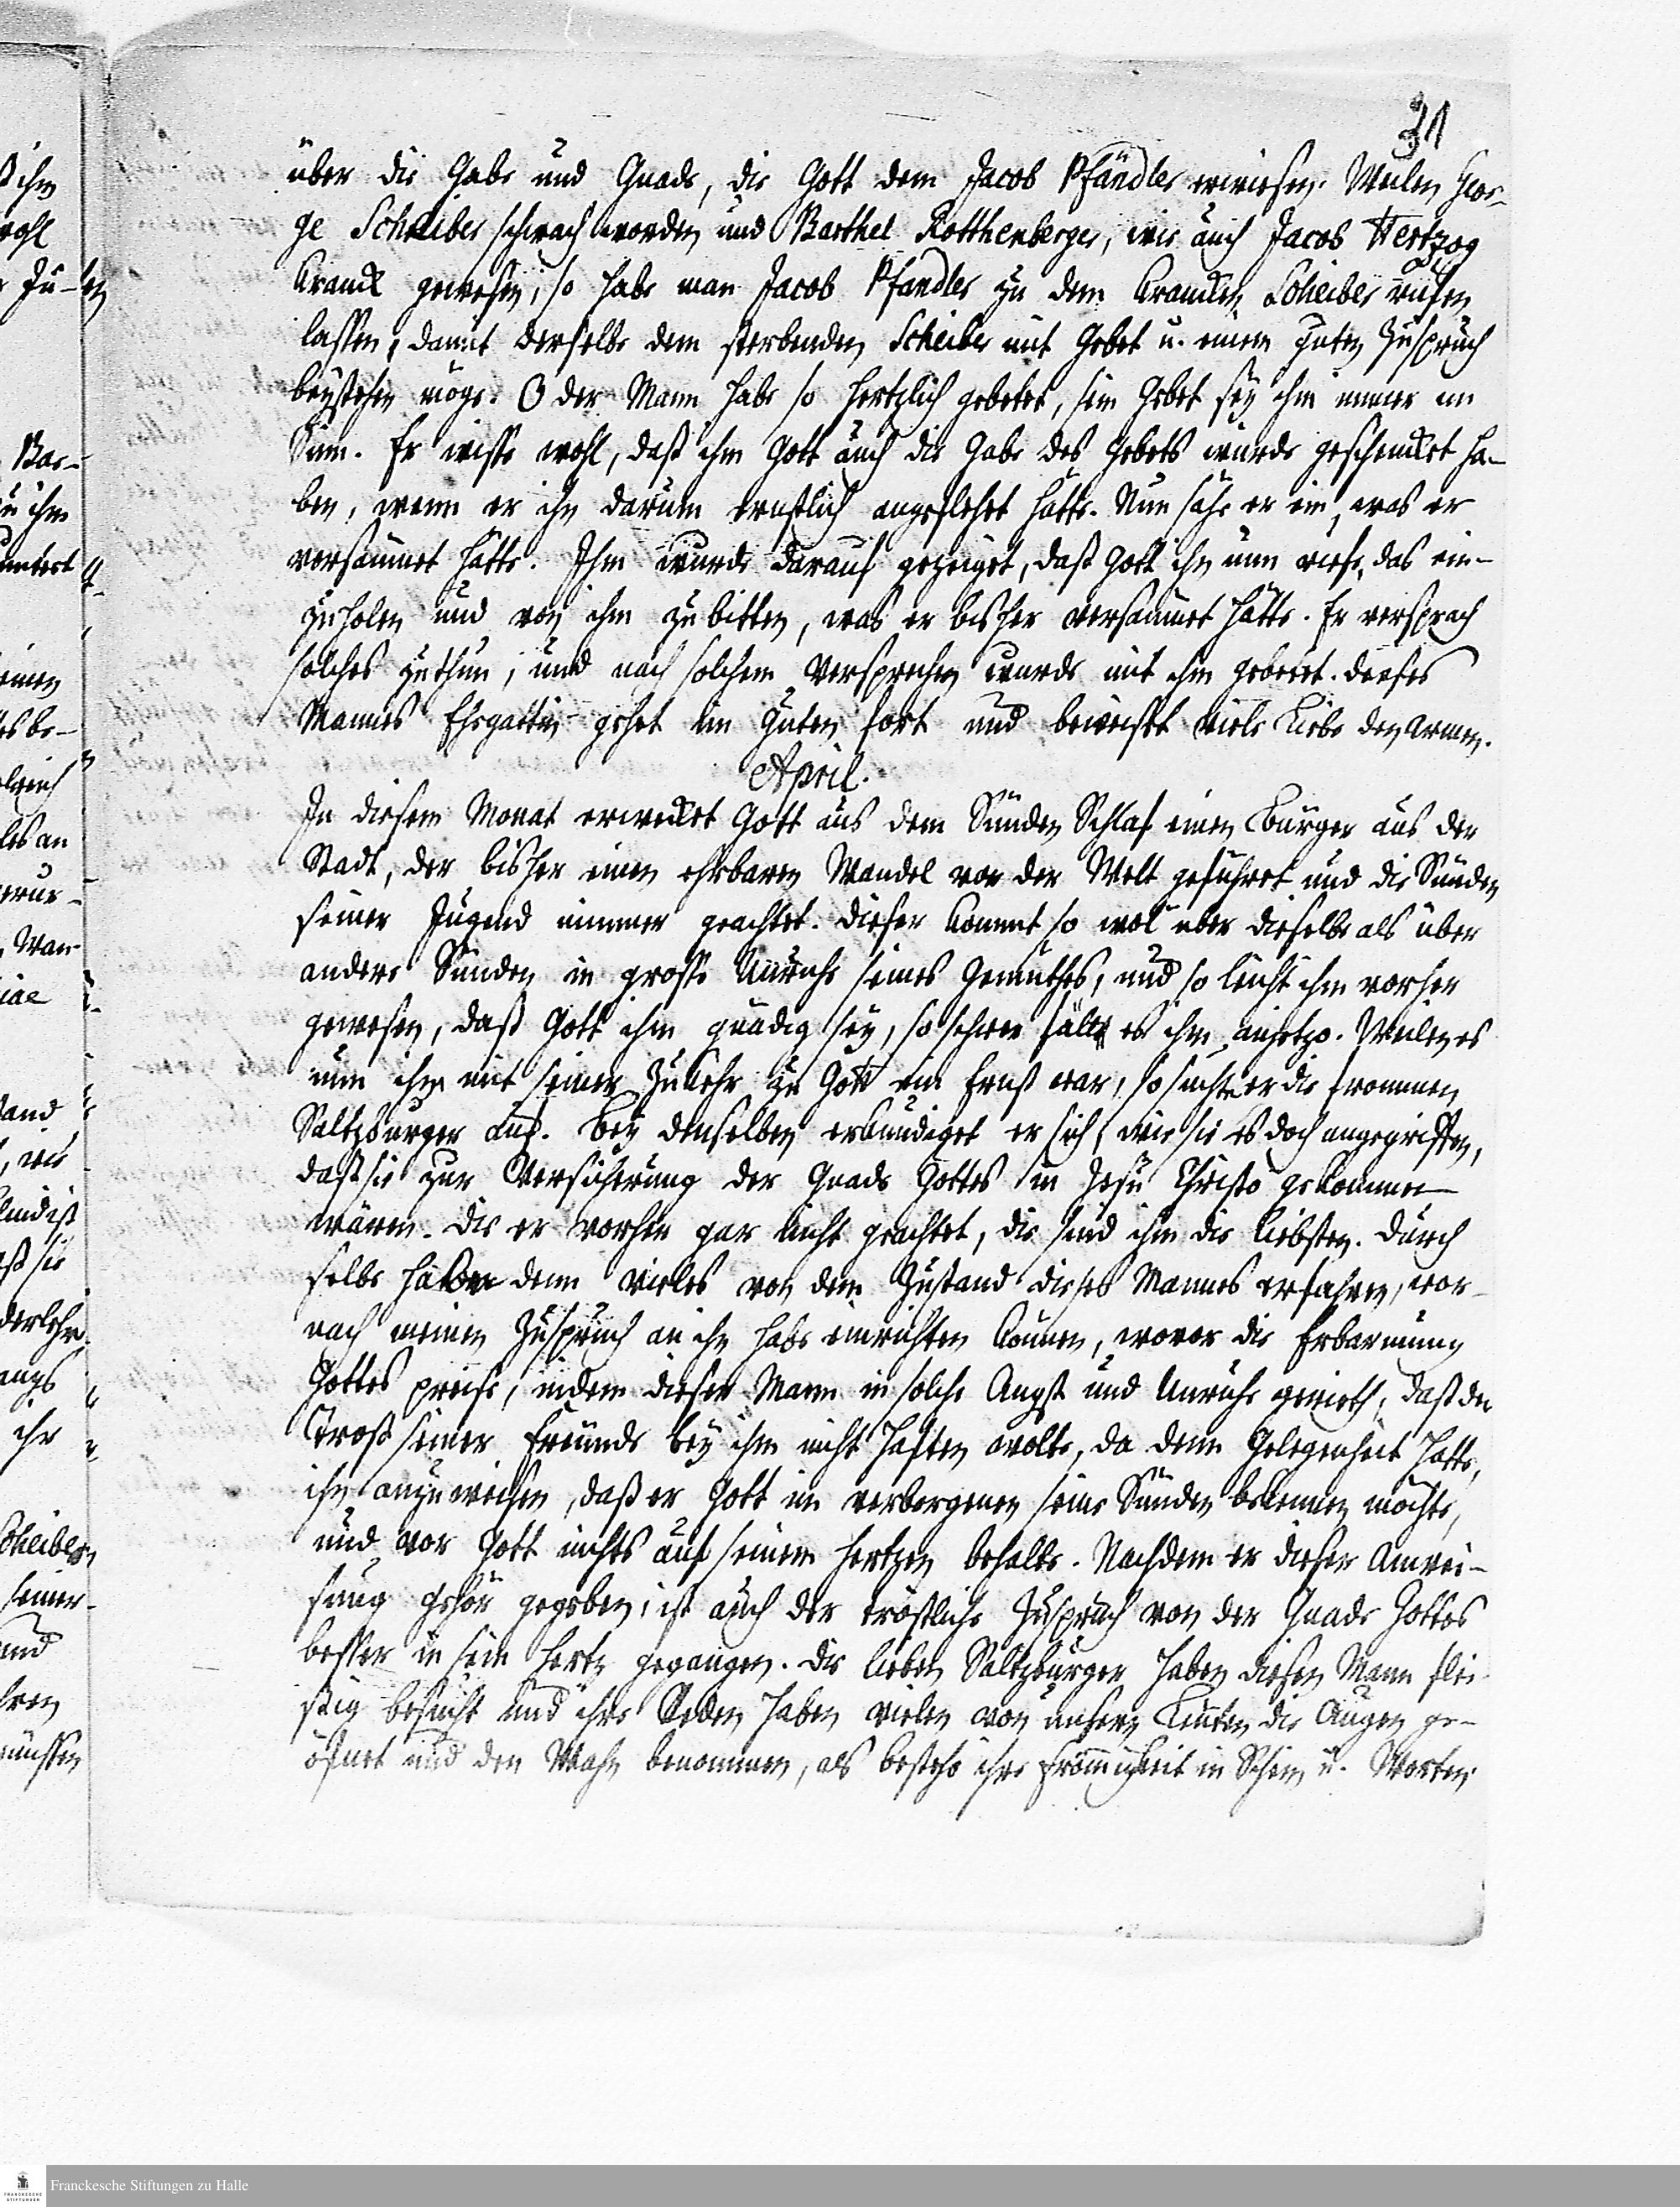 31
über die Gabe und Gnade, die Gott dem Jacob Pfändler erwiesen. Weilen Geor-
ge Scheiber schwach worden und Barthel Rotthenberger, wie auch Jacob Hertzog
kranck gewesen, so habe man Jacob Pfändler zu dem krancken Scheiber rufen
lassen, damit derselbe dem sterbenden Scheiber mit Gebet u. einem guten Zuspruch
beystehen möge. O der Mann habe so hertzlich gebetet, sein Gebet sey ihm immer im
Sinn. Er wisse wohl, daß ihm Gott auch die Gabe des Gebets würde geschencket ha-
ben, wenn er ihn darum ernstlich angeflehet hätte. Nun sähe er ein, was er
versäumet hätte. Ihm wurde darauf gezeiget, daß Gott ihn nun riefe, das ein-
zuholen und von ihm zu bitten, was er bisher versäumet hätte. Er versprach
solches zuthun, und nach solchem Versprechen wurde mit ihm gebetet. Dieses
Mannes Ehegattin gehet im Guten fort und beweiset viele Liebe den Armen.
April.
In diesem Monat erwecket Gott aus dem Sünden Schlaf einen Bürger aus der
Stadt, der bisher einen ehrbaren Wandel vor der Welt geführet und die Sünden
seiner Jugend nimmer geachtet. Dieser kommt so wol über dieselbe als über
andere Sünden in grosse Unruhe seines Gemüthes, und so leicht ihm vorher
gewesen, daß Gott ihm gnädig sey, so schwer fällt es ihm anjetzo. Weilen es
nun ihm mit seiner Zukehr zu Gott ein Ernst war, so suchte er die frommen
Saltzburger auf. Bey denselben erkundiget er sich, wie sie es doch angegriffen,
daß sie zur Versicherung der Gnade Gottes in Jesu Christo gekommen
wären. Die er vorhin gar nicht geachtet, die sind ihm die liebsten. Durch
selbe habe denn vieles von dem Zustand dieses Mannes erfahren, wor-
nach meinen Zuspruch an ihn habe einrichten können, wovor die Erbarmung
Gottes preise, indem dieser Mann in solche Angst und Unruhe gerieth, daß der
Trost seiner Freunde bey ihm nicht haften wolte, da denn Gelegenheit hatte,
ihn anzuweisen, daß er Gott im verborgenen seine Sünden bekennen möchte,
und vor Gott nichts auf seinem Hertzen behalte. Nachdem er dieser Anwei-
sung Gehör gegeben, ist auch der tröstliche Zuspruch von der Gnade Gottes
besser in sein Hertz gegangen. Die lieben Saltzburger haben diesen Mann flei-
ssig besucht und ihre Reden haben vielen von unsern Leuten die Augen ge-
öfnet und den Wahn benommen, als bestehe ihre Frömmigkeit in Schein u. Worten.
Franckesche Stiftungen zu Halle